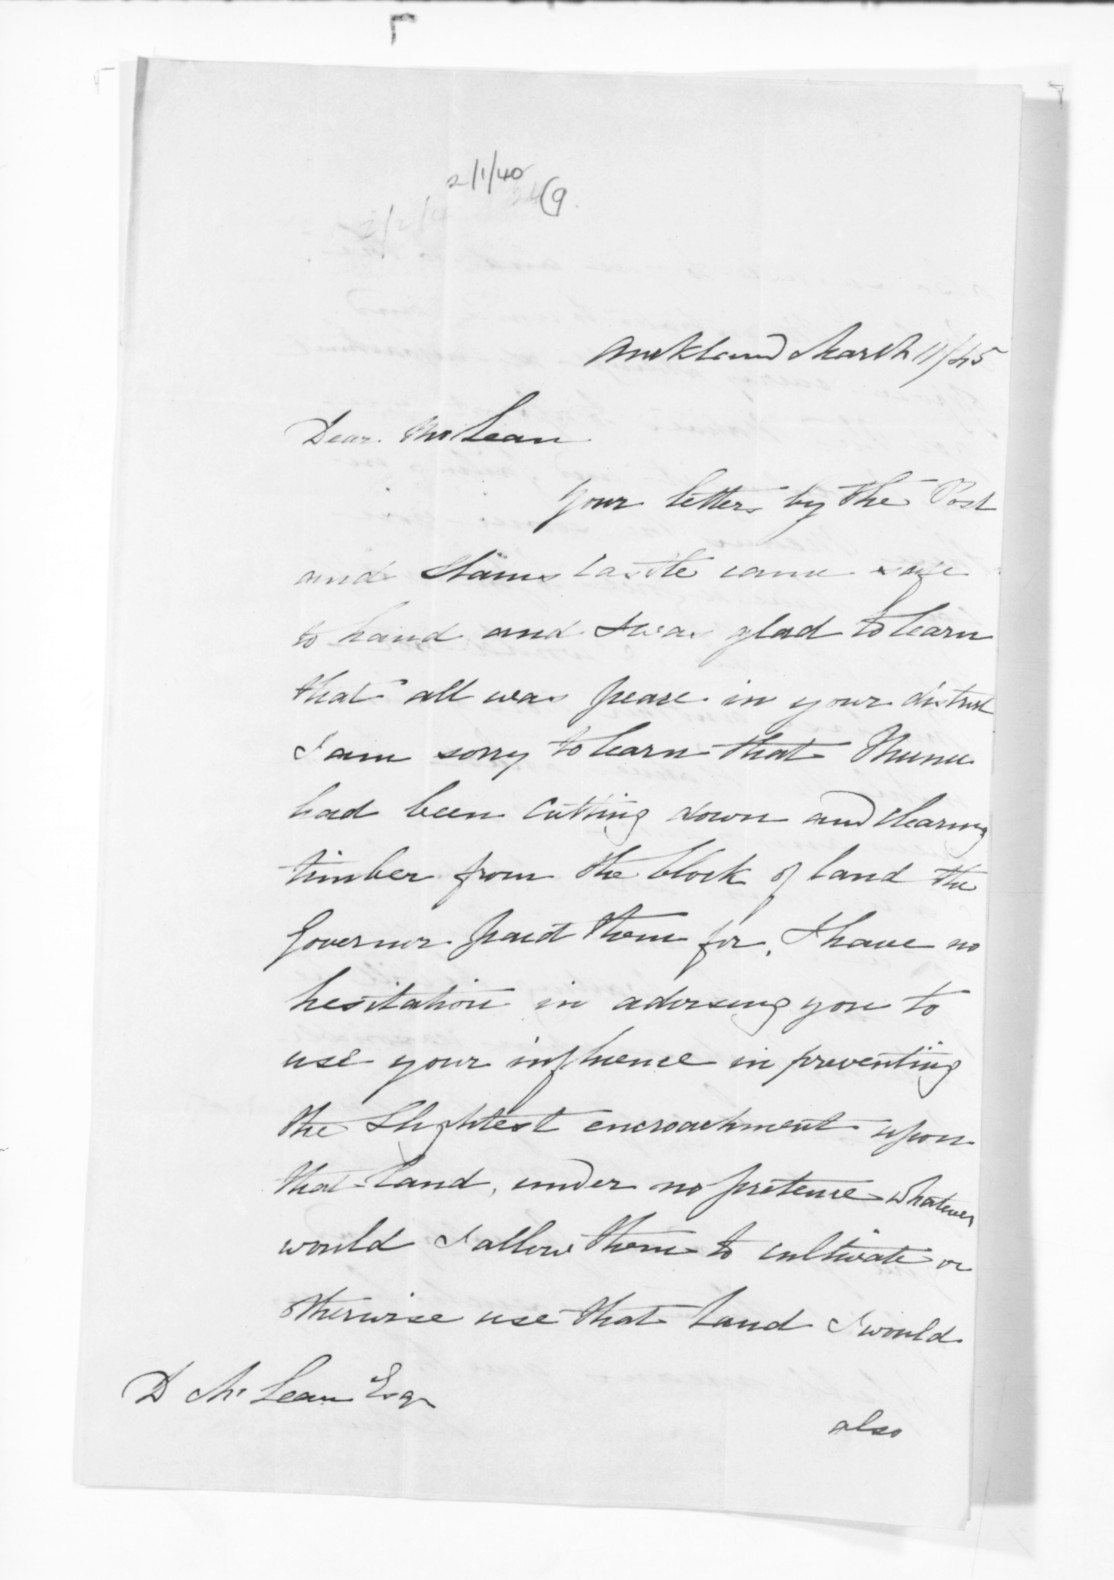 2/1/40
9
Auckland March 11/45
Dear McLean
Your letters by the Post
and Slains Castle came safe
to hand and I was glad to learn
that all was peace in your district
I am sorry to learn that
had been cutting down and clearing
timber from the block of land the
Governor paid them for, I have no
hesitation in advising you to
use your influence in preventing
the slightest encroachment upon
that land, under no pretence whatever
would I allow them to cultivate or
otherwise use that land I would
D McLean Esqr
also